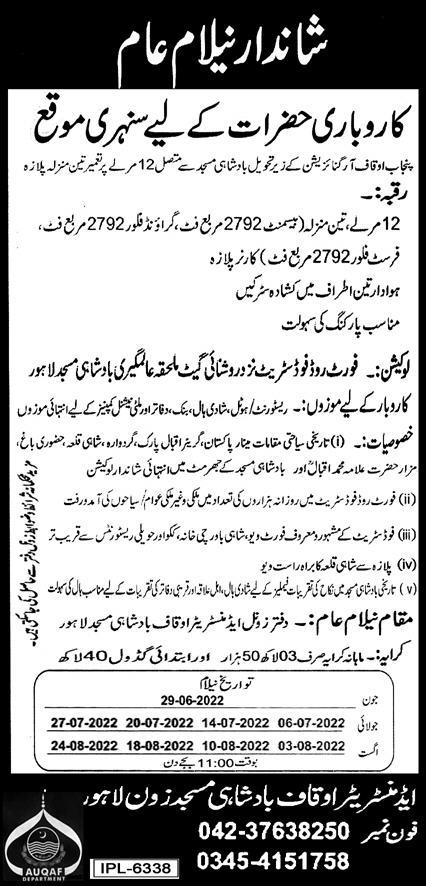 شاندار نیلام عام
کاروباری حضرات کے لیے سنہری موقع
پنجاب اوقاف آرگنائزیشن کے زیر تحویل بادشاہی مسجد سے متصل 12 مرلے پر تعمیر تین منزلہ پلازہ
رقبہ:۔
12 مرلے، تین منزلہ (بیسمنٹ 2792 مربع فٹ، گراؤنڈ فلور 2792 مربع فٹ،
فرسٹ فلور 2792 مربع فٹ) کارنر پلازہ
ہوادار تین اطراف میں کشادہ سڑکیں
مناسب پارکنگ کی سہولت
لوکیشن:۔ فورٹ روڈ فوڈ سٹریٹ نزد روشنائی گیٹ ملحقہ عالمگیری بادشاہی مسجد لاہور
کاروبار کے لیے موزوں:۔ ریسٹورنٹ/ہوٹل، شادی ہال، بنک، دفاتر اور ملٹی نیشنل کمپنیز کے لیے انتہائی موزوں
خصوصیات:۔ (i) تاریخی سیاحتی مقامات مینار پاکستان، گریٹر اقبال پارک، گردوارہ، شاہی قلعہ، حضوری باغ،
مزار حضرت علامہ محمد اقبالؒ اور بادشاہی مسجد کے جھرمٹ میں انتہائی شاندار لوکیشن
(ii) فورٹ روڈ فوڈ سٹریٹ میں روزانہ ہزاروں کی تعداد میں ملکی و غیر ملکی عوام/سیاحوں کی آمدورفت
(iii) فوڈ سٹریٹ کے مشہور و معروف فورٹ ویو، شاہی باورچی خانہ، ککو اور حویلی ریسٹورنٹس سے قریب تر
(iv) پلازہ سے شاہی قلعہ کا براہ راست ویو
(v) تاریخی بادشاہی مسجد میں نکاح کی تقریبات فیملیز کے لیے شادی ہال، اہل علاقہ اور قریبی دفاتر کی تقریبات کے لیے مناسب ہال کی سہولت
مقام نیلام عام:۔ دفتر زونل ایڈمنسٹریٹر اوقاف بادشاہی مسجد لاہور
کرایہ:۔ ماہانہ کرایہ صرف 03 لاکھ 50 ہزار اور ابتدائی گڈول 40 لاکھ
تواریخ نیلام
جون 29-06-2022
جولائی 06-07-2022 14-07-2022 20-07-2022 27-07-2022
اگست 03-08-2022 10-08-2022 18-08-2022 24-08-2022
بوقت 11:00 بجے دن
ایڈمنسٹریٹر اوقاف بادشاہی مسجد زون لاہور
فون نمبر 042-37638250
0345-4151758
AUQAF
DEPARTMENT
IPL-6338